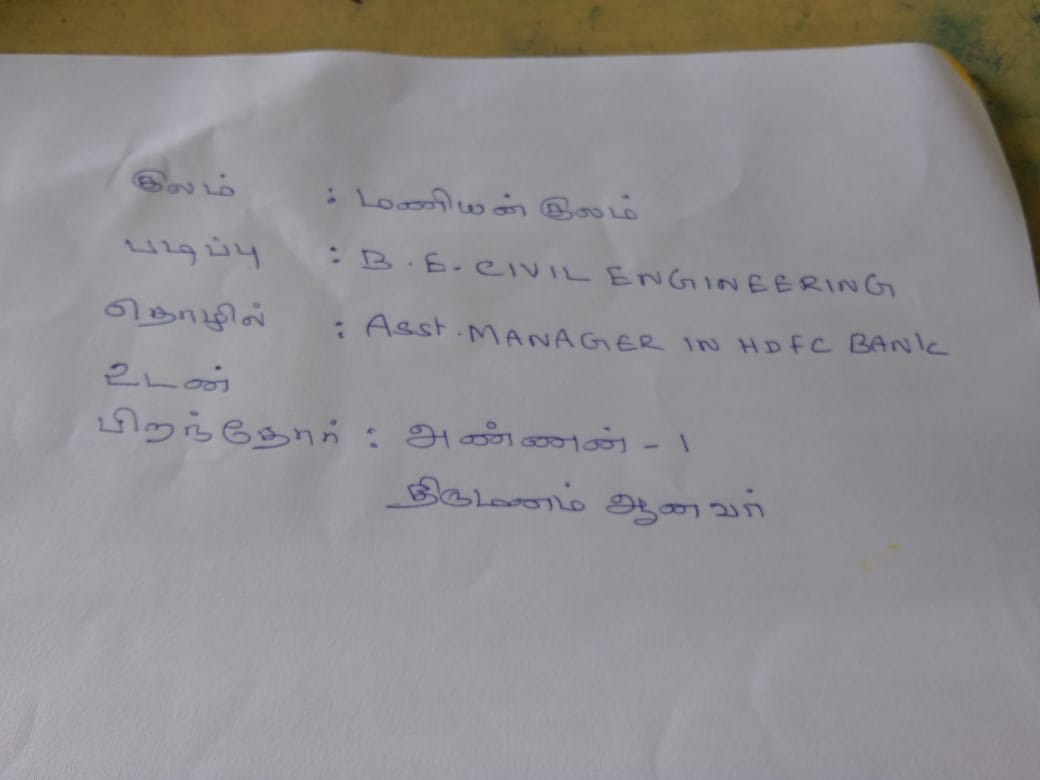 குலம் : மணியன் குலம்
படிப்பு : B.E. CIVIL ENGINEERING
தொழில் : Asst. MANAGER IN HDFC BANK
உடன்
பிறந்தோர் : அண்ணன் - 1
திருமணம் ஆனவர்